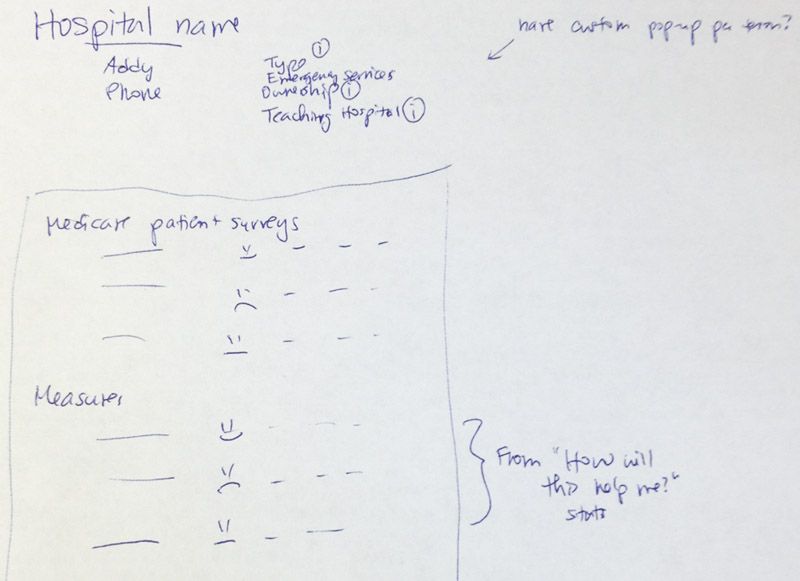 Hospital name
have custom pop-up per
Addy
Phone
Type i
Emergency services
Ownership i
Teaching Hospital i
Medicare patient surveys
Measures
From "How will
this help me?"
stats